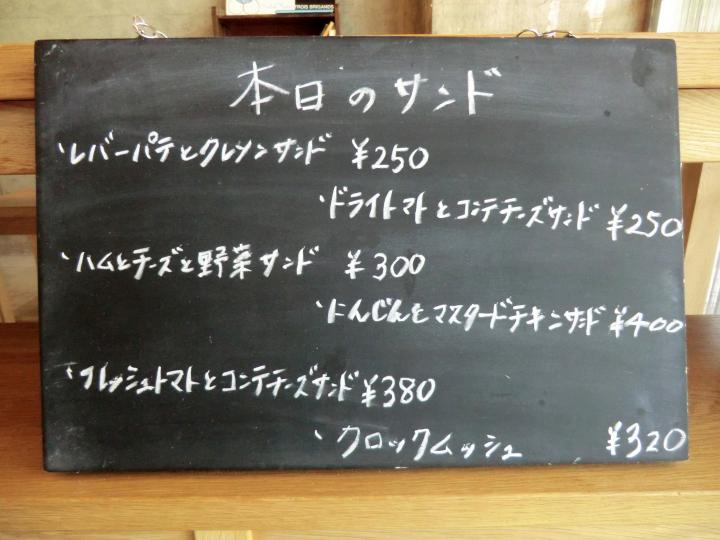 TROIS BRIGANDS
本日のサンド
、レバーパテとクレソンサンド ¥250
、ドライトマトとコンテチーズサンド ¥250
、ハムとチーズと野菜サンド ¥300
、にんじんとマスタードチキンサンド ¥400
、フレッシュトマトとコンテチーズサンド ¥380
、クロックムッシュ ¥320